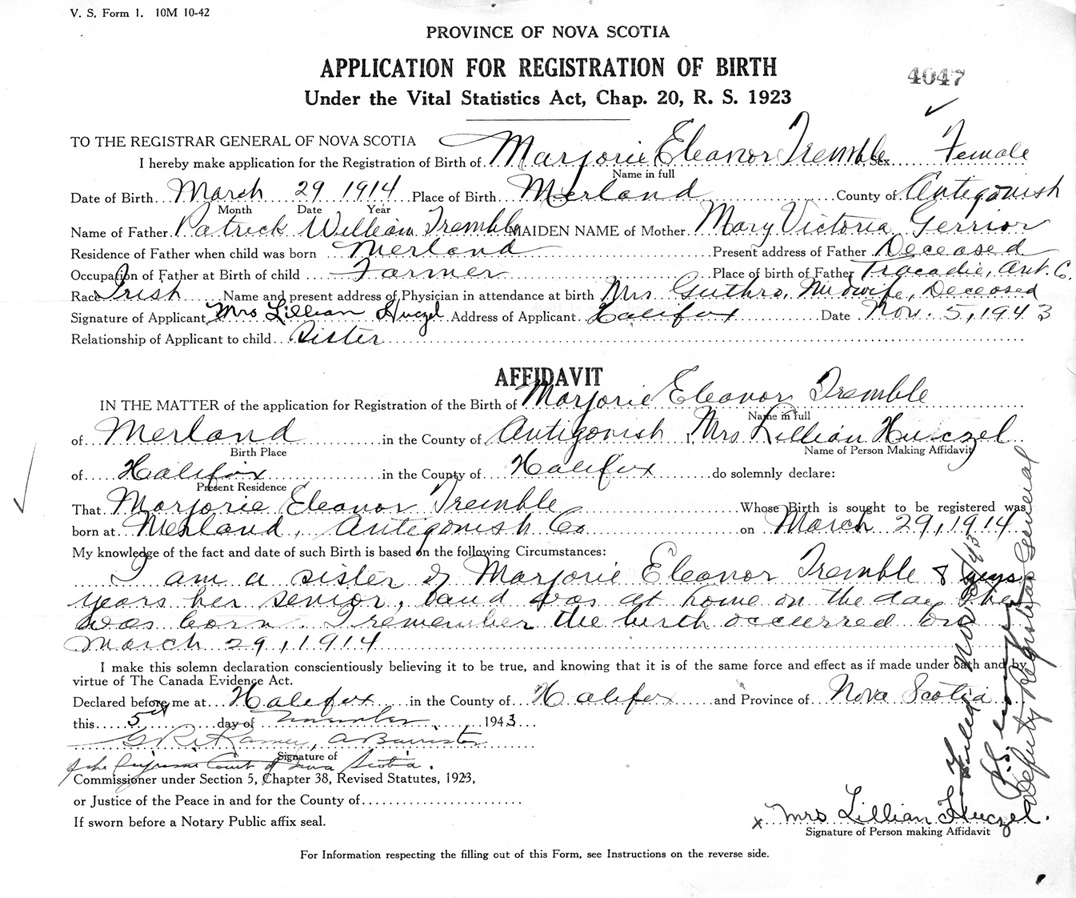 V. S. Form 1. 10M 10-42
PROVINCE OF NOVA SCOTIA
APPLICATION FOR REGISTRATION OF BIRTH
4047
Under the Vital Statistics Act, Chap. 20, R. S. 1923
TO THE REGISTRAR GENERAL OF NOVA SCOTIA
I hereby make application for the Registration of Birth of Marjorie Eleanor Tremble Sex Female
Name in full
Date of Birth March 29 1914 Place of Birth Merland County of Antigonish
Month Date Year
Name of Father Patrick William Tremble MAIDEN NAME of Mother Mary Victoria Gerrior
Residence of Father when child was born Merland Present address of Father Deceased
Occupation of Father at Birth of child Farmer Place of birth of Father Tracadie, Ant. C.
Race Irish Name and present address of Physician in attendance at birth Mrs Guthro, Midwife, Deceased
Signature of Applicant Mrs Lillian Huczel Address of Applicant Halifax Date Nov. 5, 1943
Relationship of Applicant to child Sister
AFFIDAVIT
IN THE MATTER of the application for Registration of the Birth of Marjorie Eleanor Tremble
Name in full
of Merland in the County of Antigonish I Mrs Lillian Huczel
Birth Place Name of Person Making Affidavit
of Halifax in the County of Halifax do solemnly declare:
Present Residence
That Marjorie Eleanor Tremble Whose Birth is sought to be registered was
born at Merland, Antigonish Co on March 29, 1914
My knowledge of the fact and date of such Birth is based on the following Circumstances:
I am a sister of Marjorie Eleanor Tremble 8
years her senior, and was at home on the day she
was born. I remember the birth occurred on
March 29, 1914
I make this solemn declaration conscientiously believing it to be true, and knowing that it is of the same force and effect as if made under oath and by
virtue of The Canada Evidence Act.
Declared before me at Halifax in the County of Halifax and Province of Nova Scotia
this 5th day of November 1943
A Barrister
Signature of
of the Supreme Court of Nova Scotia.
Commissioner under Section 5, Chapter 38, Revised Statutes, 1923,
or Justice of the Peace in and for the County of
If sworn before a Notary Public affix seal.
x Mrs Lillian Huczel.
Signature of Person making Affidavit
For Information respecting the filling out of this Form, see Instructions on the reverse side.
Filed Nov
Deputy Registrar General